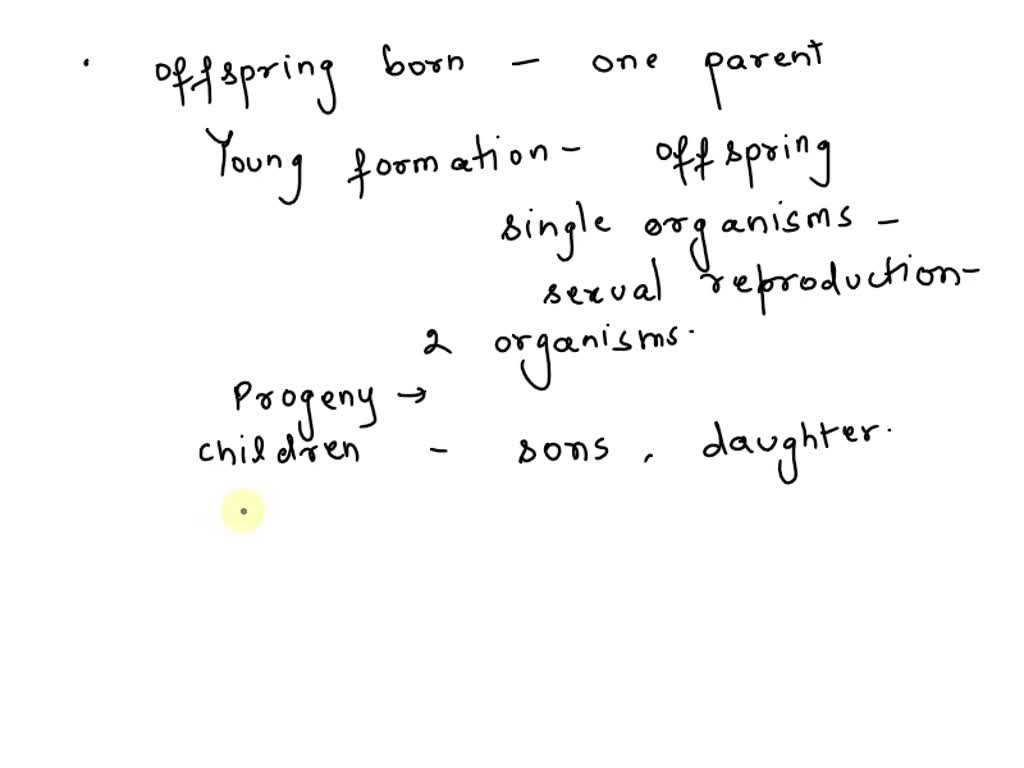 offspring born - one parent
Young formation - offspring
single organisms -
sexual reproduction -
2 organisms.
Progeny →
children - sons, daughter.